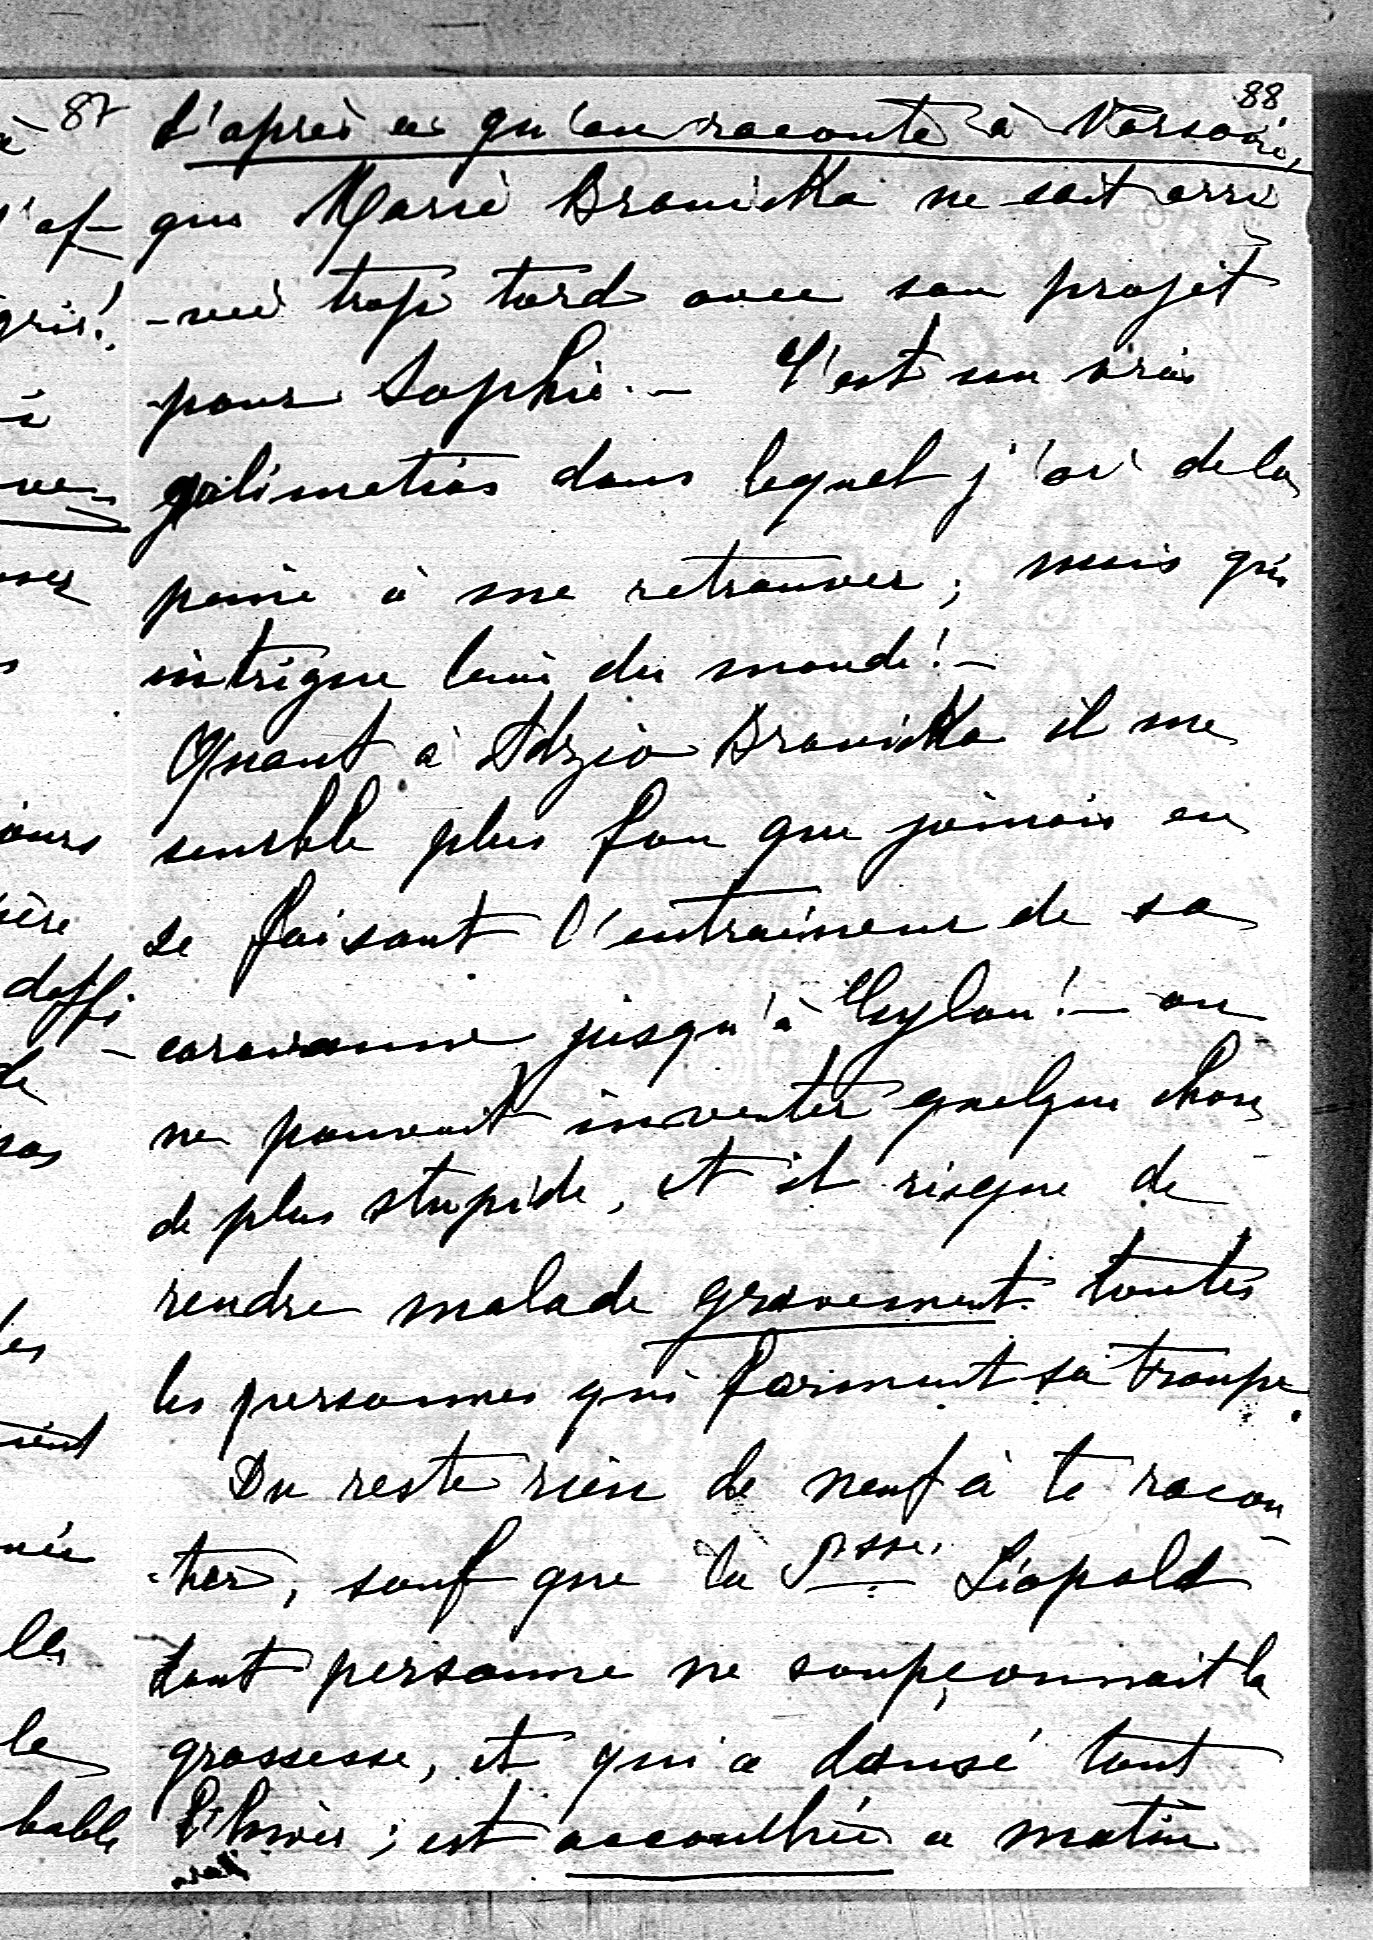 87
88
d'après ce qu'on raconte à Varsovie,
que Marie Branicka ne soit arri
-vée trop tard avec son projet
pour Sophie. – C'est un vrai
galimatias dans lequel j'ai de la
peine à me retrouver; mais qui
intrigue bien du monde! –
Quant à Adzio Branicka il me
semble plus fou que jamais en
se faisant l'entraîneur de sa
caravanne jusqu'à Ceylon! – on
ne pouvait inventer quelque chose
de plus stupide, et il risque de
rendre malade gravement toutes
les personnes qui forment sa troupe.
Du reste rien de neuf à te racon
-ter, sauf que la Psse. Léopold
dont personne ne soupçonnait la
grossesse, et qui a dansé tout
l'hiver; est accouchée ce matin